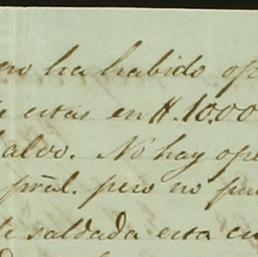 no ha habido op
estas en #.10.00
alvo. No hay ope
pral. pero no pu
saldada esta cu